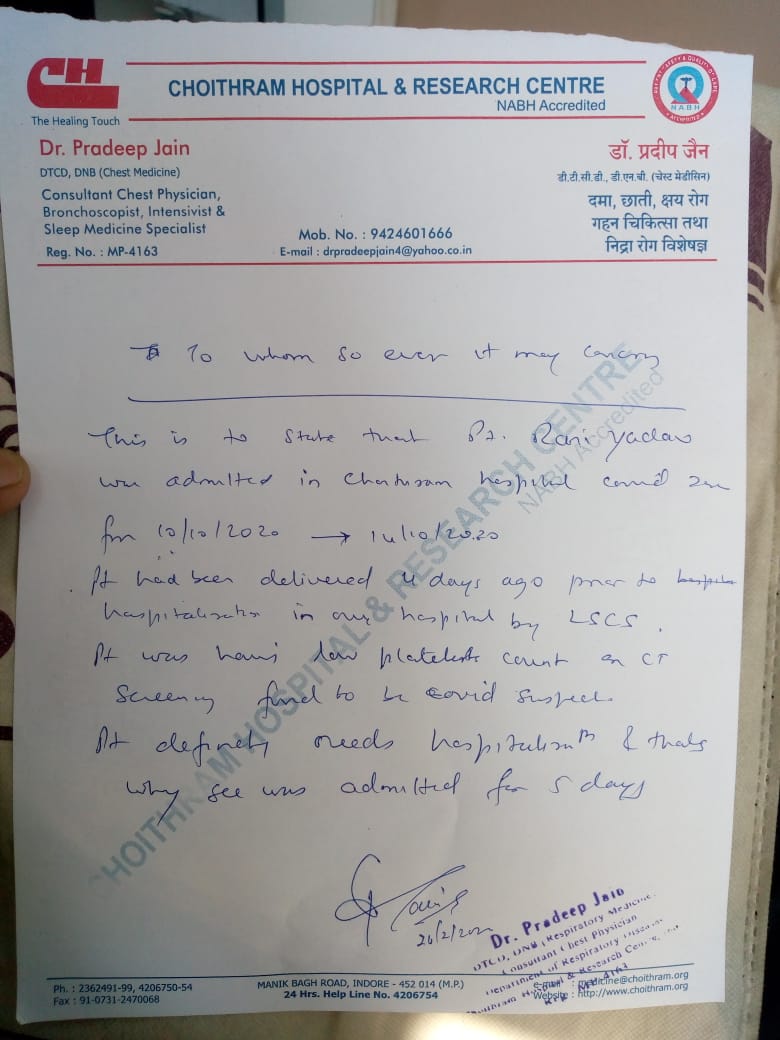 CH
The Healing Touch
CHOITHRAM HOSPITAL & RESEARCH CENTRE
NABH Accredited
NABH
Dr. Pradeep Jain
DTCD, DNB (Chest Medicine)
Consultant Chest Physician,
Bronchoscopist, Intensivist &
Sleep Medicine Specialist
Reg. No. : MP-4163
Mob. No. : 9424601666
E-mail : drpradeepjain4@yahoo.co.in
डॉ. प्रदीप जैन
डी.टी.सी.डी., डी.एन.बी. (चेस्ट मेडीसिन)
दमा, छाती, क्षय रोग
गहन चिकित्सा तथा
निद्रा रोग विशेषज्ञ
To whom so ever it may concern
This is to state that Pt. Rani Yadav
was admitted in Choithram hospital covid
for 10/10/2020 → 14/10/2020
Pt had been delivered 4 days ago prior to
hospitalisation in our hospital by LSCS.
Pt was having low platelets count on CT
screening found to be covid suspect
Pt definetly needs hospitalisatn & thats
why see was admitted for 5 days
CHOITHRAM HOSPITAL & RESEARCH CENTRE
NABH Accredited
Dr. Pradeep Jain
DTCD, DNB (Respiratory Medicine)
Consultant Chest Physician
Department of Respiratory
Choithram Hospital & Research Centre,
Ph. : 2362491-99, 4206750-54
Fax : 91-0731-2470068
MANIK BAGH ROAD, INDORE - 452 014 (M.P.)
24 Hrs. Help Line No. 4206754
Website : http://www.choithram.org